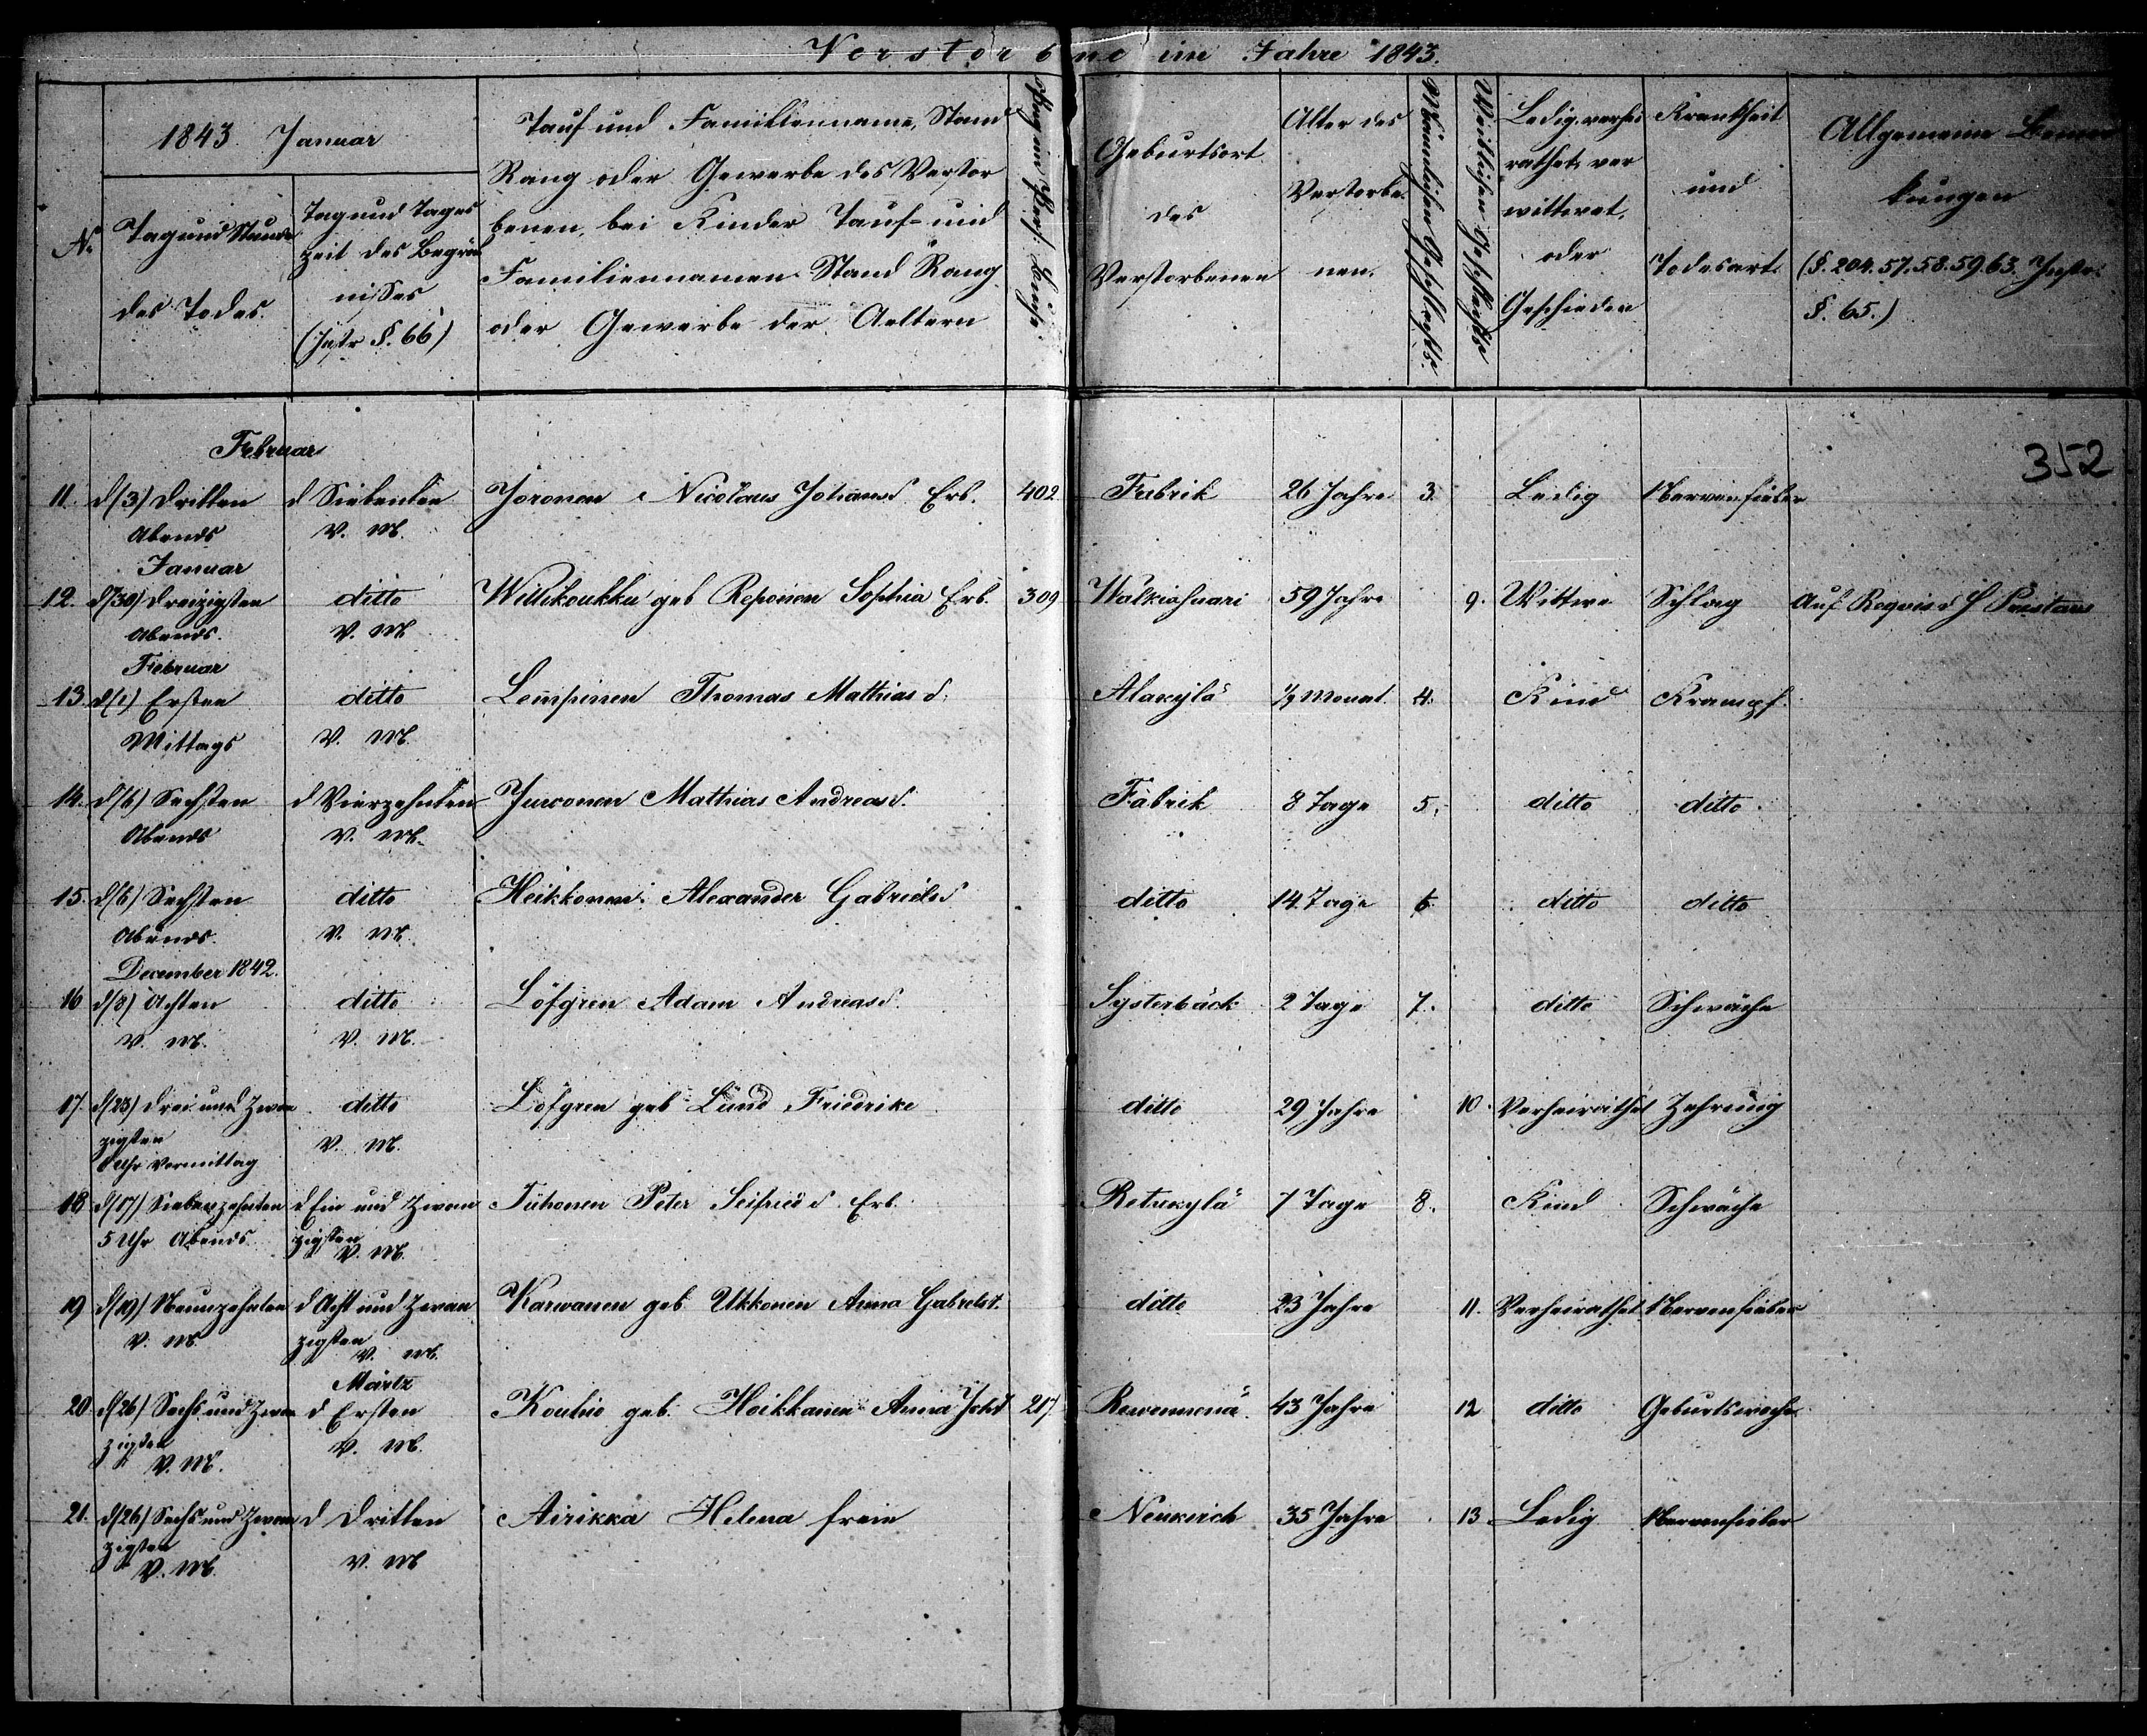 Verstorbene im Jahre 1843.
1843 Januar
№
Tag und Stunde
des Todes.
Tag und Tages
zeit des Begräb
nisses
(Instr §. 66)
Tauf und Familienname, Stand
Rang oder Gewerbe des Verstor
benen, bei Kinder Tauf- und
Familiennamen Stand Rang
oder Gewerbe der Aeltern
Geburtsort
des
Verstorbenen
Alter des
Verstorbe
nen.
Männlichen Geschlechts.
Weiblichen Geschlechts
Ledig, verhei
rathet, ver
wittwet,
oder
Geschieden
Krankheit
und
Todesart.
Allgemeine Bemer
kungen
(§. 204. 57. 58. 59. 63. Instr.
§. 65.)
352
Februar
11. d (3) Dritten d Siebenten Joronen Nicolaus Johansd. Erb. 402 Fabrik 26 Jahre 3. Ledig Nervenfieber
Abends V. M.
Januar
12. d (30) Dreizigsten ditto Willikoukku geb Reponen Sophia Erb. 309 Walkiasaari 59 Jahre 9. Wittwe Schlag Auf Requis d H
Abends. V. M
Februar
13. d (1) Ersten ditto Lempinen Thomas Mathias d. Alakylä ½ Monat. 4. Kind Krampf.
Mittags V. M.
14. d (6) Sechsten d Vierzehnten Juwonen Mathias Andreasd. Fabrik 8 Tage 5. ditto ditto
Abends V. M.
15. d (6) Sechsten ditto Heikkonen Alexander Gabrielsd ditto 14 Tage 6. ditto ditto
Abends. V. M.
December 1842.
16 d (8) Achten ditto Löfgren Adam Andreasd. Systerbäck 2 Tage 7. ditto Schwäche
V. M. V. M.
17. d (23) Drei und Zwan ditto Löfgren geb Lund Friedrike ditto 29 Jahre 10. Verheirathet Zehrung
zigsten V. M.
Uhr Vormittag
18 d (17) Siebenzehnten d Ein und Zwan Tuhonen Peter Seifried d. Erb. Retukylä 7 Tage 8. Kind Schwäche
5 Uhr Abends zigsten V. M.
19 d (19) Neunzehnten d Acht und Zwan Karwanen geb Ukkonen Anna Gabrielst. ditto 23 Jahre 11. Verheirathet Nervenfieber
V. M. zigsten V. M.
Märtz
20 d (26) Sechs und Zwan d Ersten Kouhio geb. Heikkanen Anna Johd 217. 43 Jahre 12 ditto
zigsten V. M. V. M.
21. d (26) Sechs und Zwan d Dritten Airikka Helena freie Neukirch 35 Jahre 13 Ledig Nervenfieber
zigsten V. M. V. M